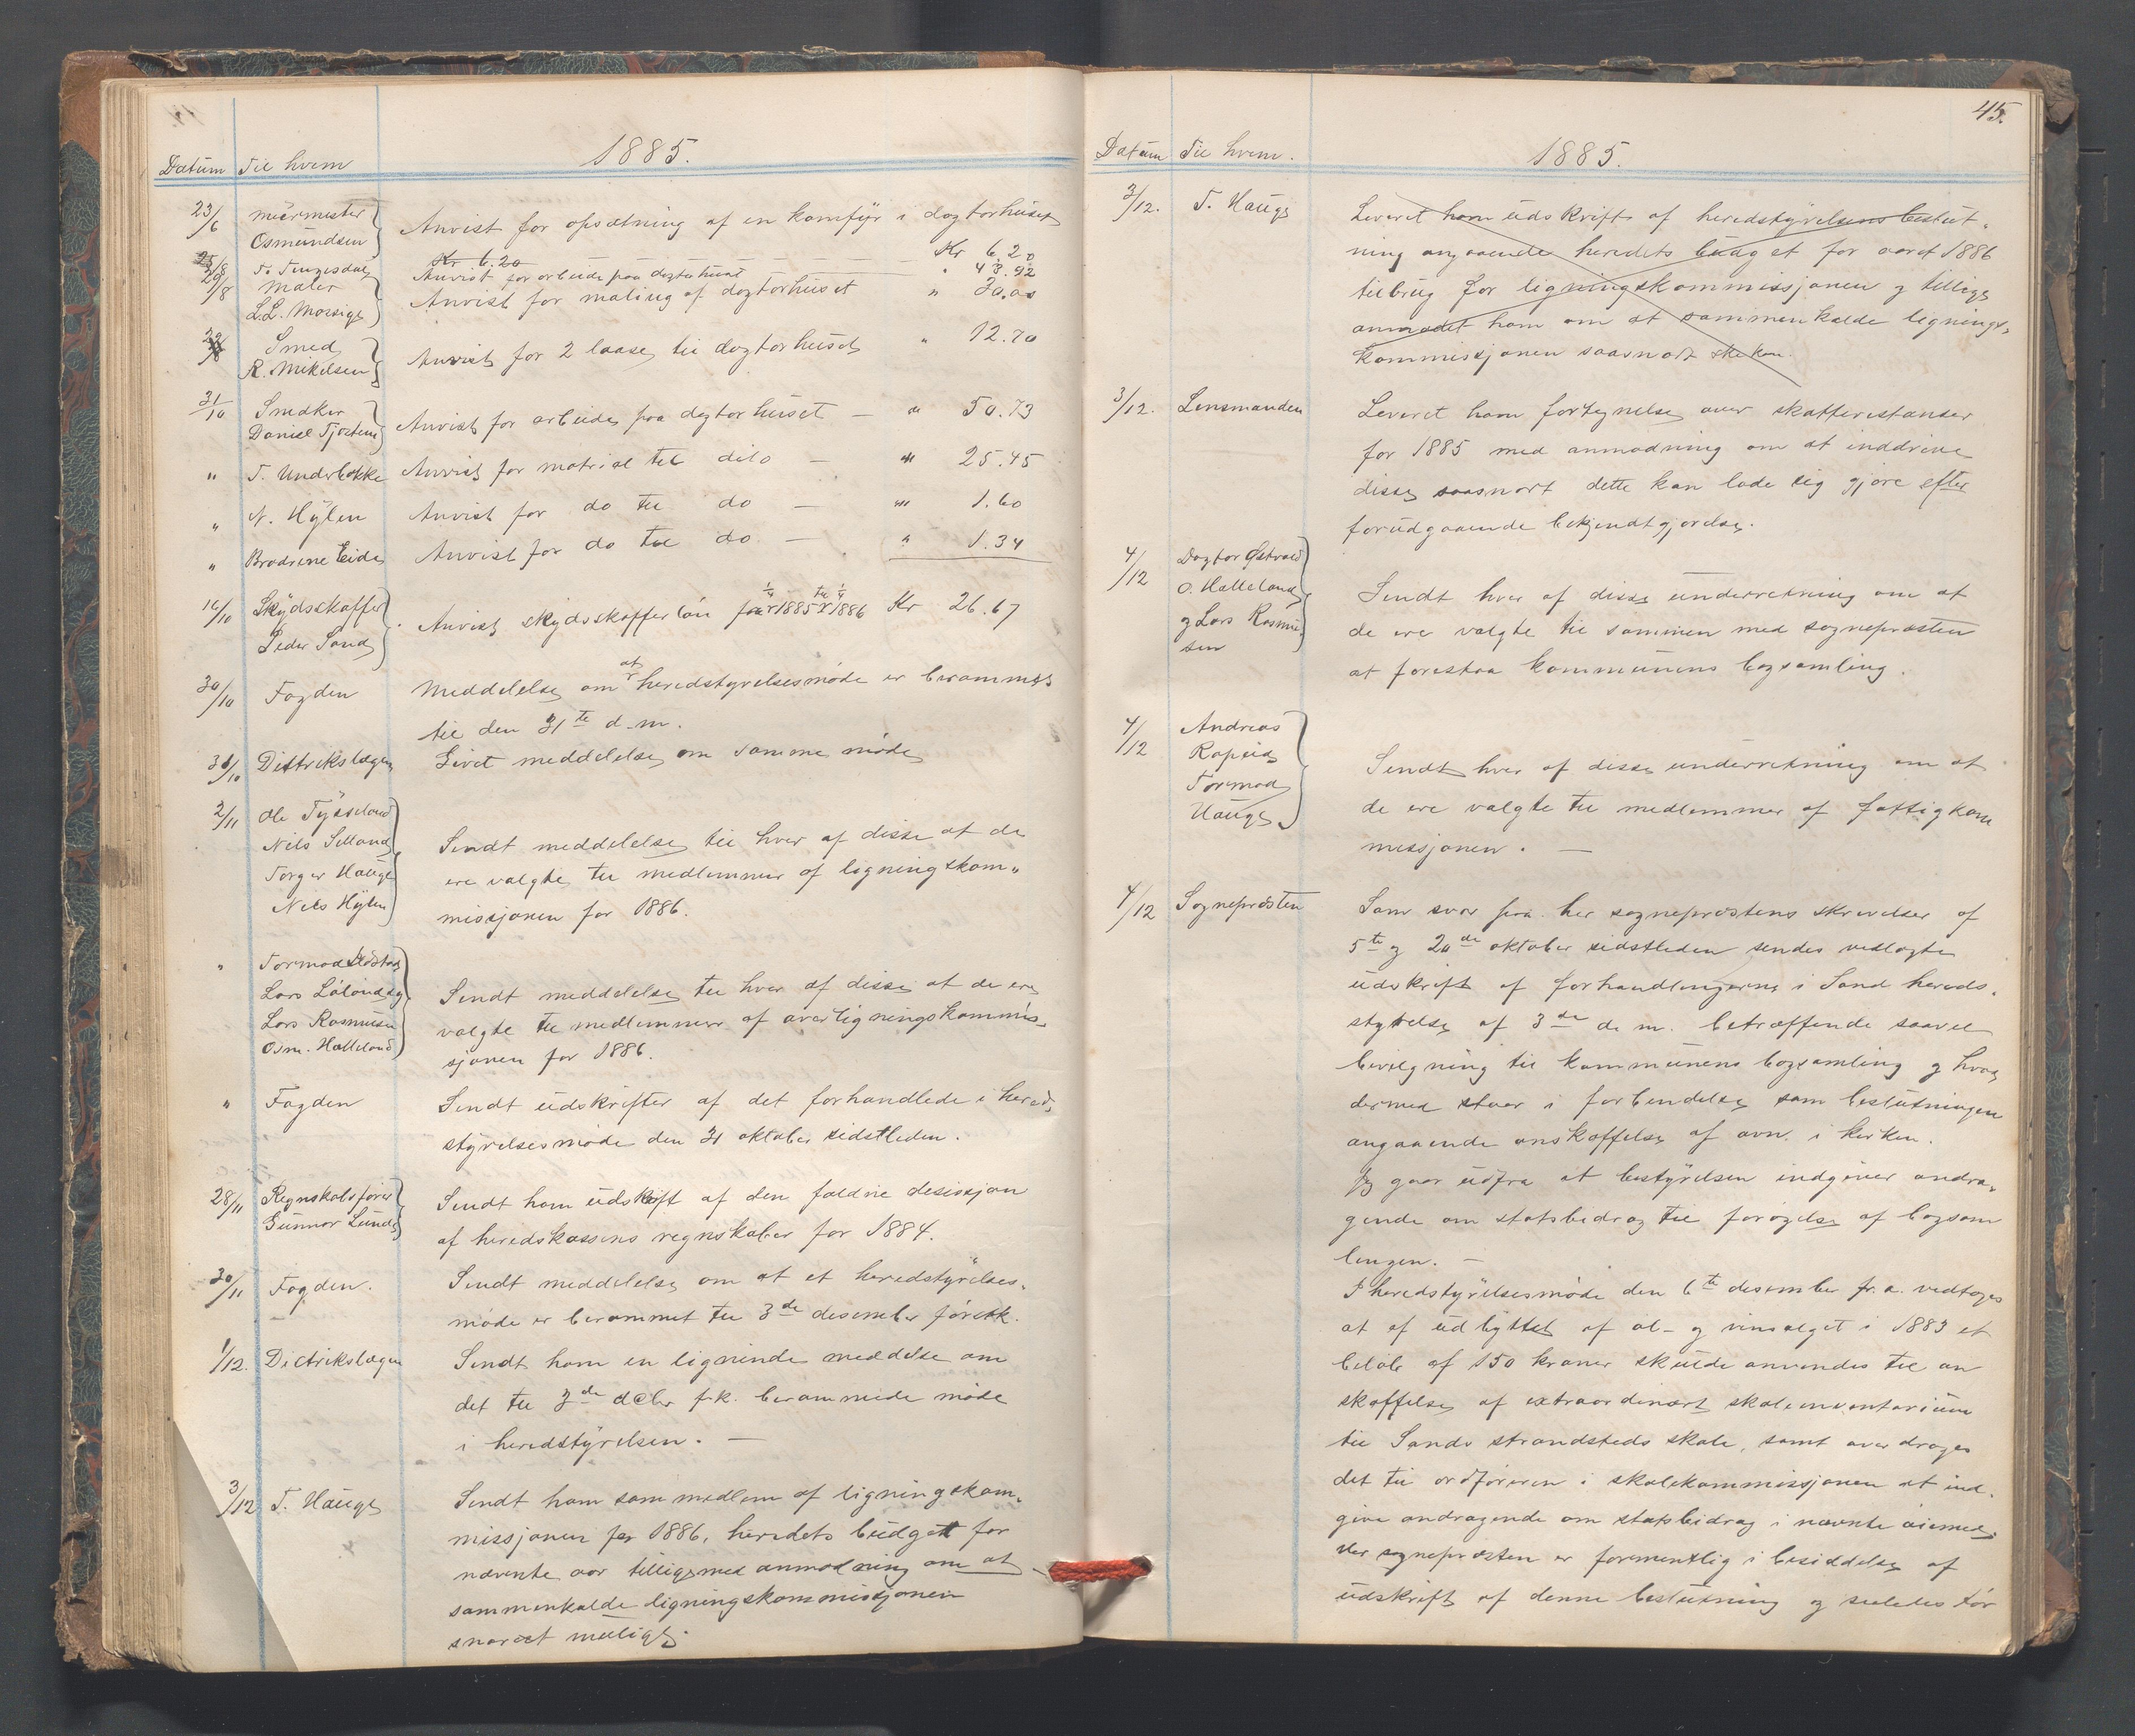 1885.
Datum Til hvem
23/6 Murmester Osmundsen Anvist for opsætning af en komfyr i dogtorhuset
Kr 6.20 Kr 6.20
25/8 T. Tengesdal Anvist for arbeide paa dogterhuset " 43.92
29/8 Maler L.L. Moesige Anvist for maling af dogtorhuset " 30.00
29/8 Smed R. Mikelsen Anvist for 2 laase til dogtorhuset " 12.70
31/10 Snedker Daniel Tjostem Anvist for arbeide paa dogtorhuset — " 50.73
" T. Underbakke Anvist for matrial til dito — " 25.45
" N. Hylen Anvist for do til do — " 1.60
" Brødrene Eide Anvist for do til do — " 1.34
10/10 Skydsskaffer Peder Sand Anvist skydsskafferløn fra 1/4 1885 til 1/4 1886 Kr 26.67
30/10 Fogden Meddelelse om at heredstyrelsesmøde er berammet
til den 31te d.m.
30/10 Distrikslægen Givet meddelelse om samme møde
2/11 Ole Tysseland
Nils Selland
Torger Hauge
Nils Hylen
Sendt meddelelse til hver af disse at de
ere valgte til medlemmer af ligningskom-
missjonen for 1886.
" Tormod
Lars Løland
Lars Rasmusen
Osm. Halleland
Sendt meddelelse til hver af disse at de ere
valgte til medlemmer af overligningskommis-
sjonen for 1886.
" Fogden Sendt udskrifter af det forhandlede i hered-
styrelsesmøde den 31 oktober sidstleden.
28/11 Regnskabsfører Gunnar Lunde Sendt ham udskrift af den faldne desissjon
af heredskassens regnskaber for 1884.
30/11 Fogden. Sendt meddelelse om at et heredstyrelses-
møde er berammet til 3de desember førstk.
1/12. Dictrikslægen Sendt ham en lignende meddelse om
det til 3de dcbr f.k. berammede møde
i heredstyrelsen. —
3/12 T. Hauge Sendt ham som medlem af ligningskom-
missjonen for 1886, heredets budget for
nævnte aar tilligemed anmodning om at
sammenkalde ligningskommissjonen
snarest mulig.
45.
1885.
Datum Til hvem.
3/12. T. Hauge Leveret ham udskrift af heredstyrelsens beslut-
ning angaaende heredets budget for aaret 1886
til brug for ligningskommissjonen og tillige
anmodet ham om at sammenkalde lignings-
kommissjonen saasnart ske kan.
3/12. Lensmanden Leveret ham fortegnelse over skatterestanser
for 1885 med anmodning om at inddrive
disse saasnart dette kan lade sig gjøre efter
forudgaaende bekjendtgjørelse.
4/12 Dogtor Østvold
O. Halleland
og Lars Rasmu-
sen
Sendt hver af disse underretning om at
de ere valgte til sammen med sognepræsten
at forestaa kommunens bogsamling.
4/12 Andreas
Rapeid
Tormod
Hauge
Sendt hver af disse underretning om at
de ere valgte til medlemmer af fattigkom
missjonen. —
4/12 Sognepræsten Som svar paa her sognepræstens skrivelser af
5te og 20de oktober sidstleden sendes vedlagte
udskrift af forhandlingerne i Sand hereds-
styrelse af 3de d. m. betræffende saavel
bevilgning til kommunens bogsamling og hvad
dermed staar i forbindelse som beslutningen
angaaende anskaffelse af ovn i kirken.
Jeg gaar udfra at bestyrelsen indgiver andra-
gende om statsbidrag til forøgelse af bogsam
lingen. —
I heredstyrelsesmøde den 6te desember f.a. vedtoges
at af udbyttet af øl- og vinsalget i 1883 et
beløb af 150 kroner skulde anvendes til an
skaffelse af extraordinært skoleinventarium
til Sands strandsteds skole, samt overdroges
det til ordføreren i skolekommissjonen at ind-
give andragende om statsbidrag i nævnte øiemed.
Her sognepræsten er formentlig i besiddelse af
udskrift af denne beslutning og saaledes før